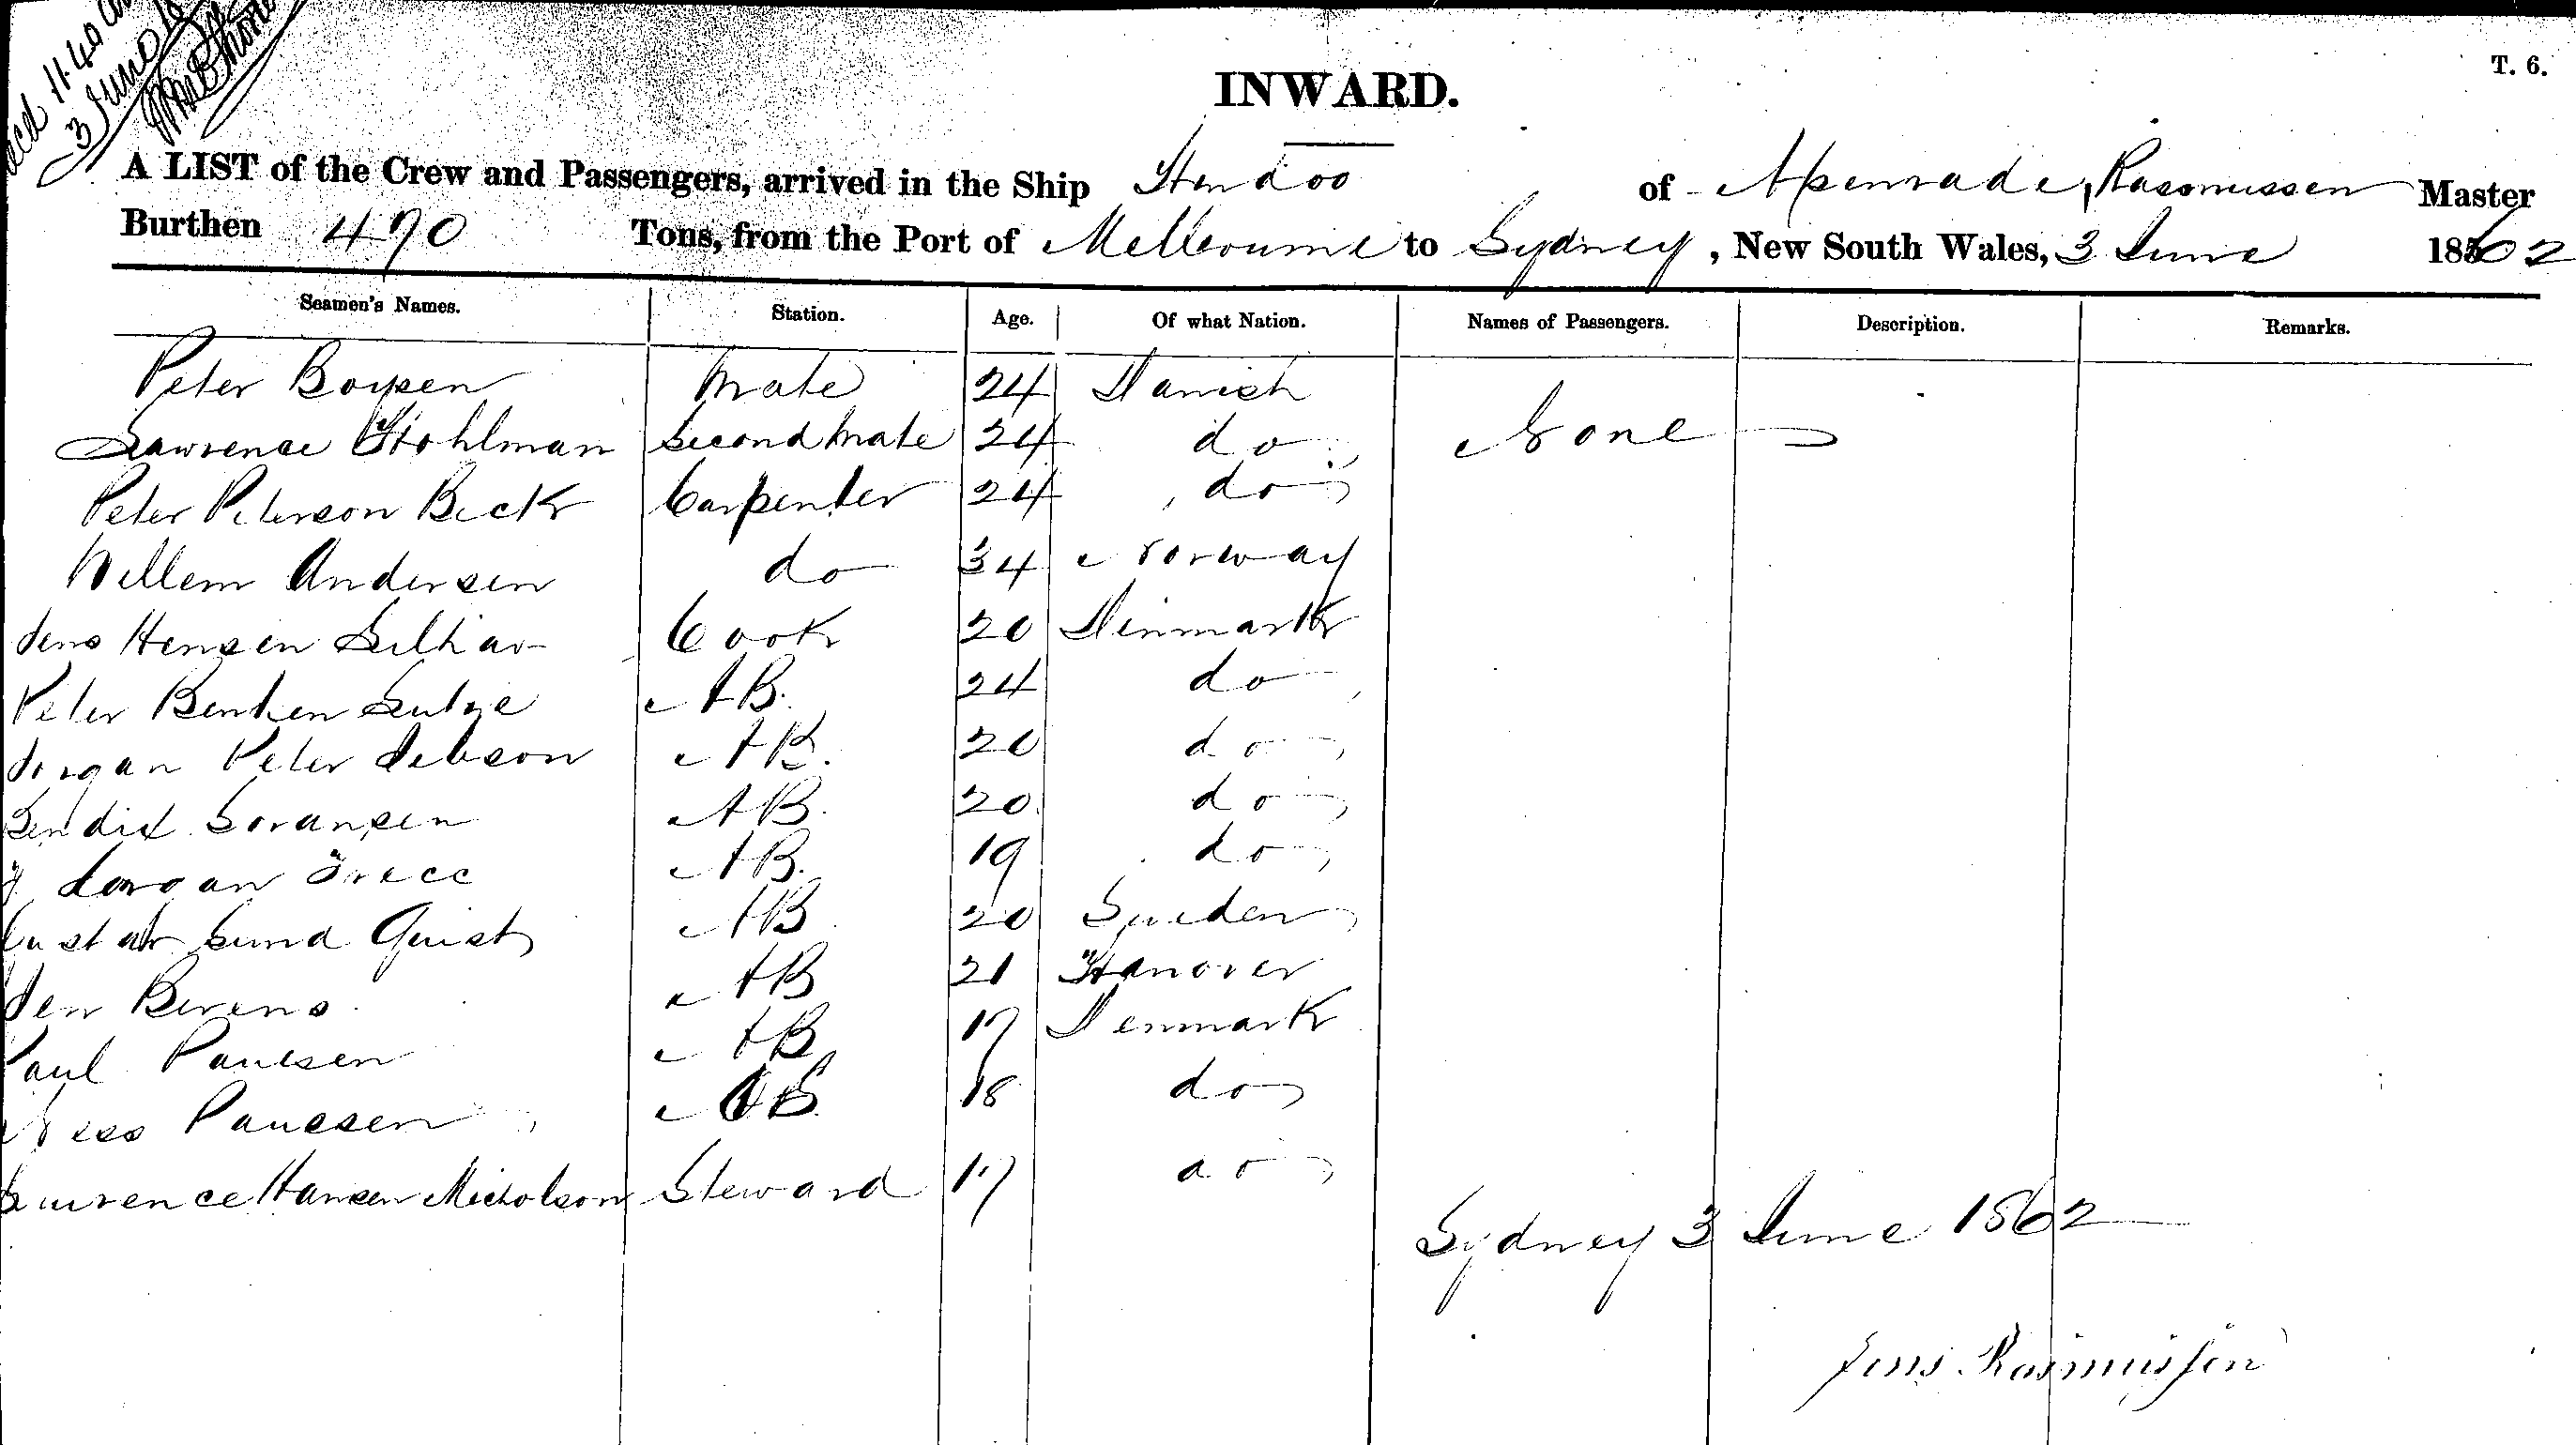 11.40
3 June
T. 6.
INWARD.
A LIST of the Crew and Passengers, arrived in the Ship Hendoo of Apenrade, Rasmussen Master
Burthen 470 Tons, from the Port of Melbourne to Sydney, New South Wales, 3 June 1862
Seamen's Names. Station. Age. Of what Nation. Names of Passengers. Description. Remarks.
Peter Boysen Mate 24 Danish
Lawrence Stohlman Second Mate 24 do None
Peter Peterson Beck Carpenter 24 do
Willem Andersen do 34 Norway
Jens Hensen Cook 20 Denmark
Peter AB. 24 do
Jorgan Peter Jebson AB. 20 do
Bendix Soransen AB. 20 do
Jorgan AB. 19 do
Gustav Lund Quist AB 20 Sweden
Berens AB 21 Hanover
Paul Paulsen AB 17 Denmark
Ness Paulsen OS. 18 do
Lawrence Hansen Nicholson Steward 17 do
Sydney 3 June 1862
Jens Rasmussen